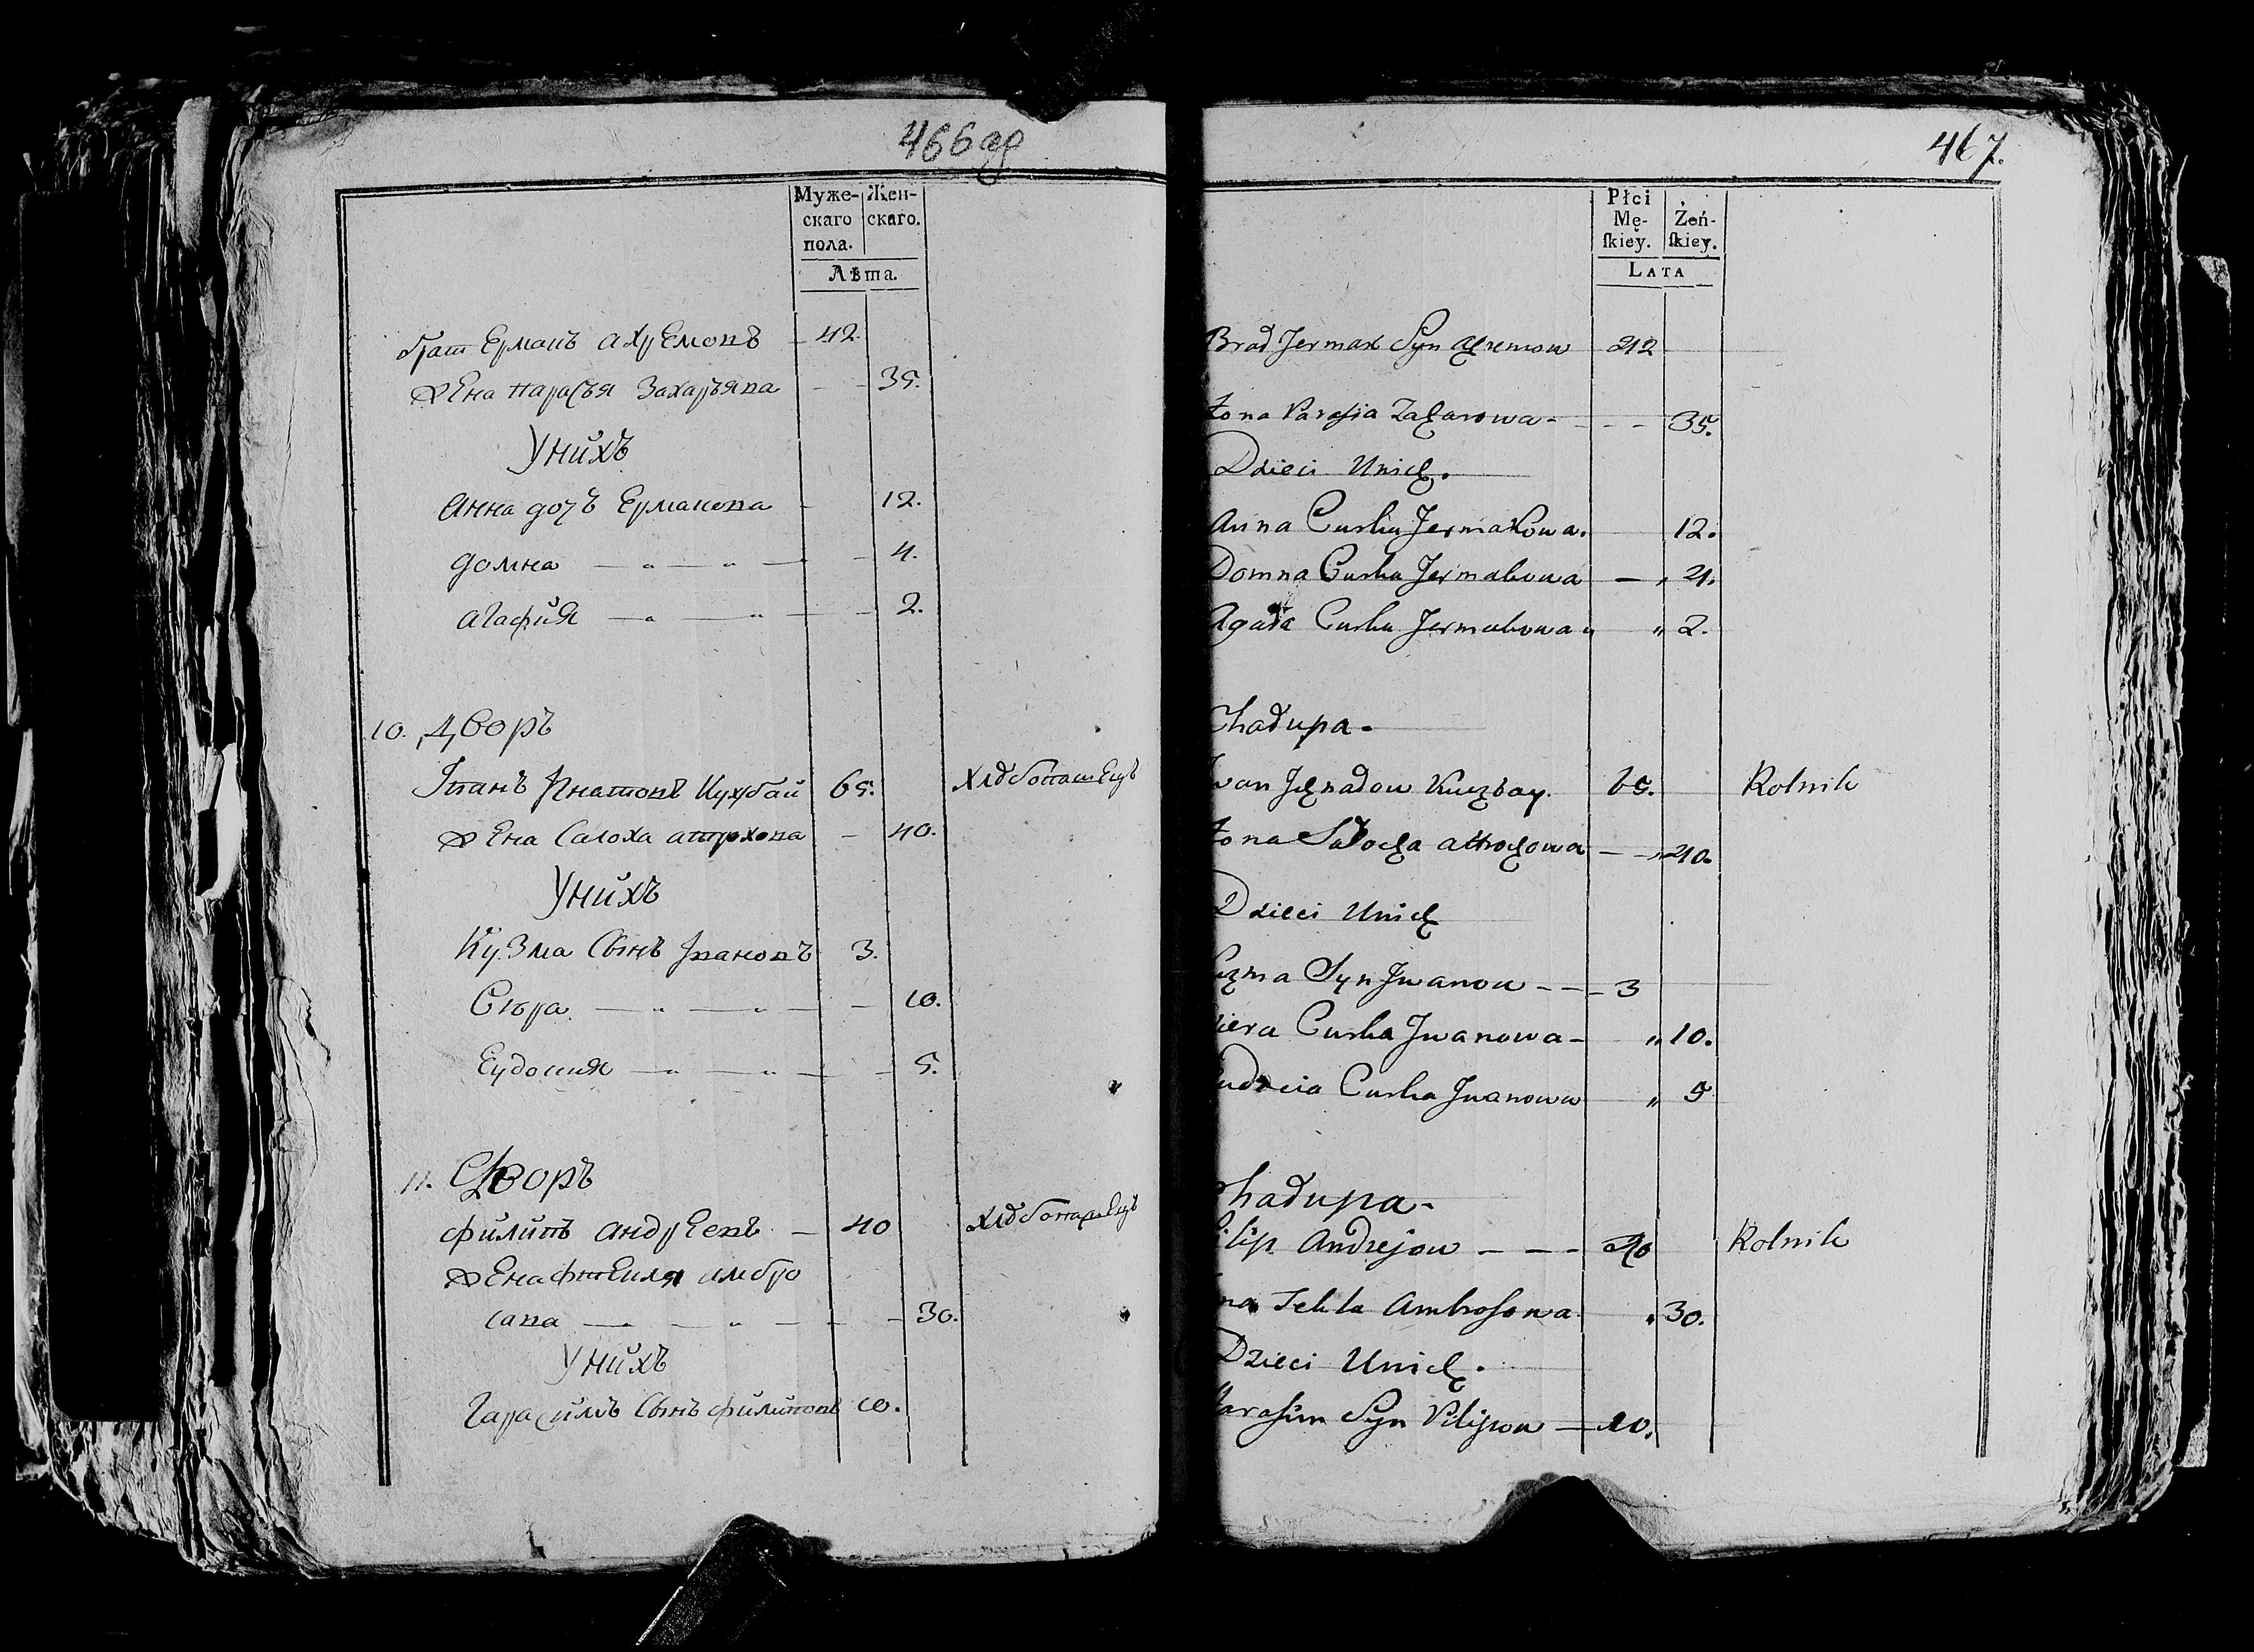 466 об
Муже-
скаго
пола.
Жен-
скаго.
Лѣта.
брат Ермакъ ахремовъ 42.
жена парасья Захарьява 35.
У нихъ
Анна дочъ Ермакова 12.
домна — „ — „ — 4.
агафия — „ — „ — 2.
10. Дворъ
Іванъ Игнатовъ Кужбай 65. хлѣбопашецъ
жена Салоха атрохова 40.
У нихъ
Кузма Сынъ Івановъ 3.
Сѣра — „ — „ — 10.
Еудокия — „ — „ — 5.
11. Дворъ
филипъ андреевъ — 40 хлѣбопашецъ
жена фтекля амбро
сава — „ — 30.
У нихъ
Гарасимъ Сынъ филиповъ 10.
467.
Płci
Mę-
ſkiey.
Żeń-
ſkiey.
LATA
Brad Jermak Syn Achremow 42
Żona Parasia Zacharowa - - - 35.
Dzieci Unich.
Anna Curka Jermakowa. 12.
Domna Curka Jermakowa — „ 4.
Agata Curka Jermakowa „ „ 2.
Chadupa -
Iwan Ichnadow 65. Rolnik
Żona Sadocha attrochowa — „ 40.
Dzieci Unich
Kuzma Syn Jwanow - - - 3
Curka Jwanowa - „ 10.
Curka Jwanowa „ 5
Chadupa -
Filip Andrejow - - - 40 Rolnik
Żona Tekla Ambrosowa „ 30.
Dzieci Unich.
Harasim Syn Pilipow — 10.